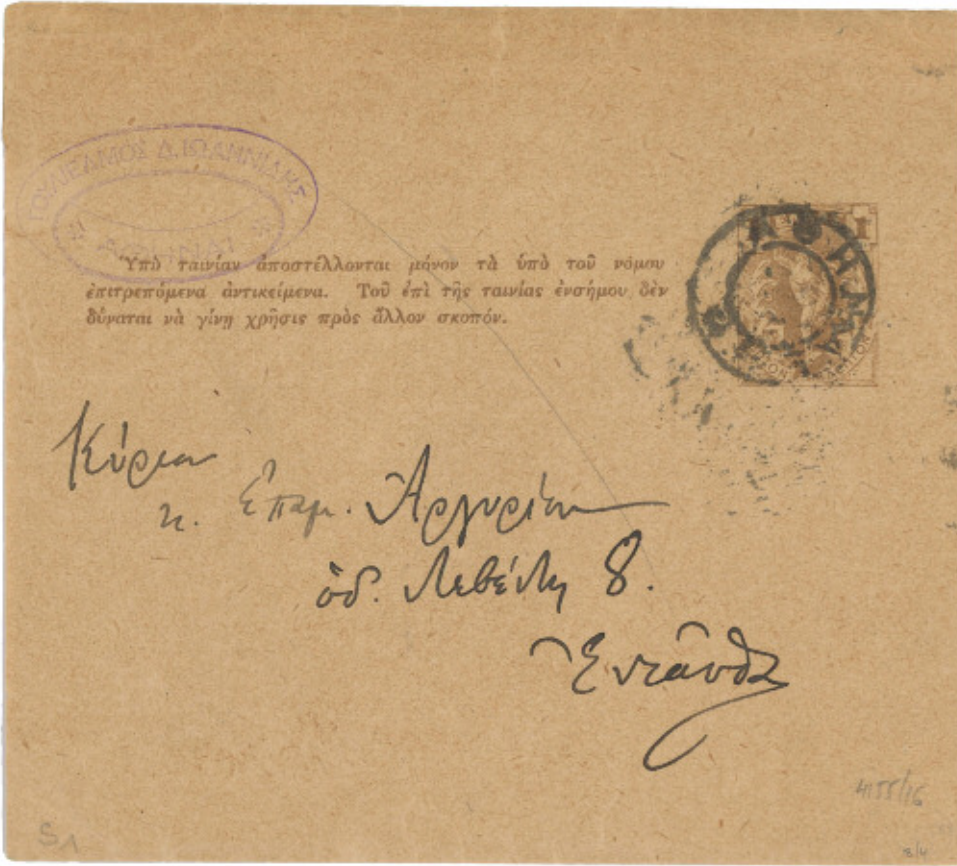 Δ. ΙΩΑΝΝΙΔΗΣ
ΑΘΗΝΑΙ
Ὑπὸ ταινίαν ἀποστέλλονται μόνον τὰ ὑπὸ τοῦ νόμου
ἐπιτρεπόμενα ἀντικείμενα. Τοῦ ἐπὶ τῆς ταινίας ἐνσήμου δὲν
δύναται νὰ γίνῃ χρῆσις πρὸς ἄλλον σκοπόν.
1
ΑΘΗΝΑΙ
Κύριον
κ. Ἐπαμ. Ἀργυρίου
ὁδ. 8.
Ἐνταῦθα
4155/16
S1
8/4